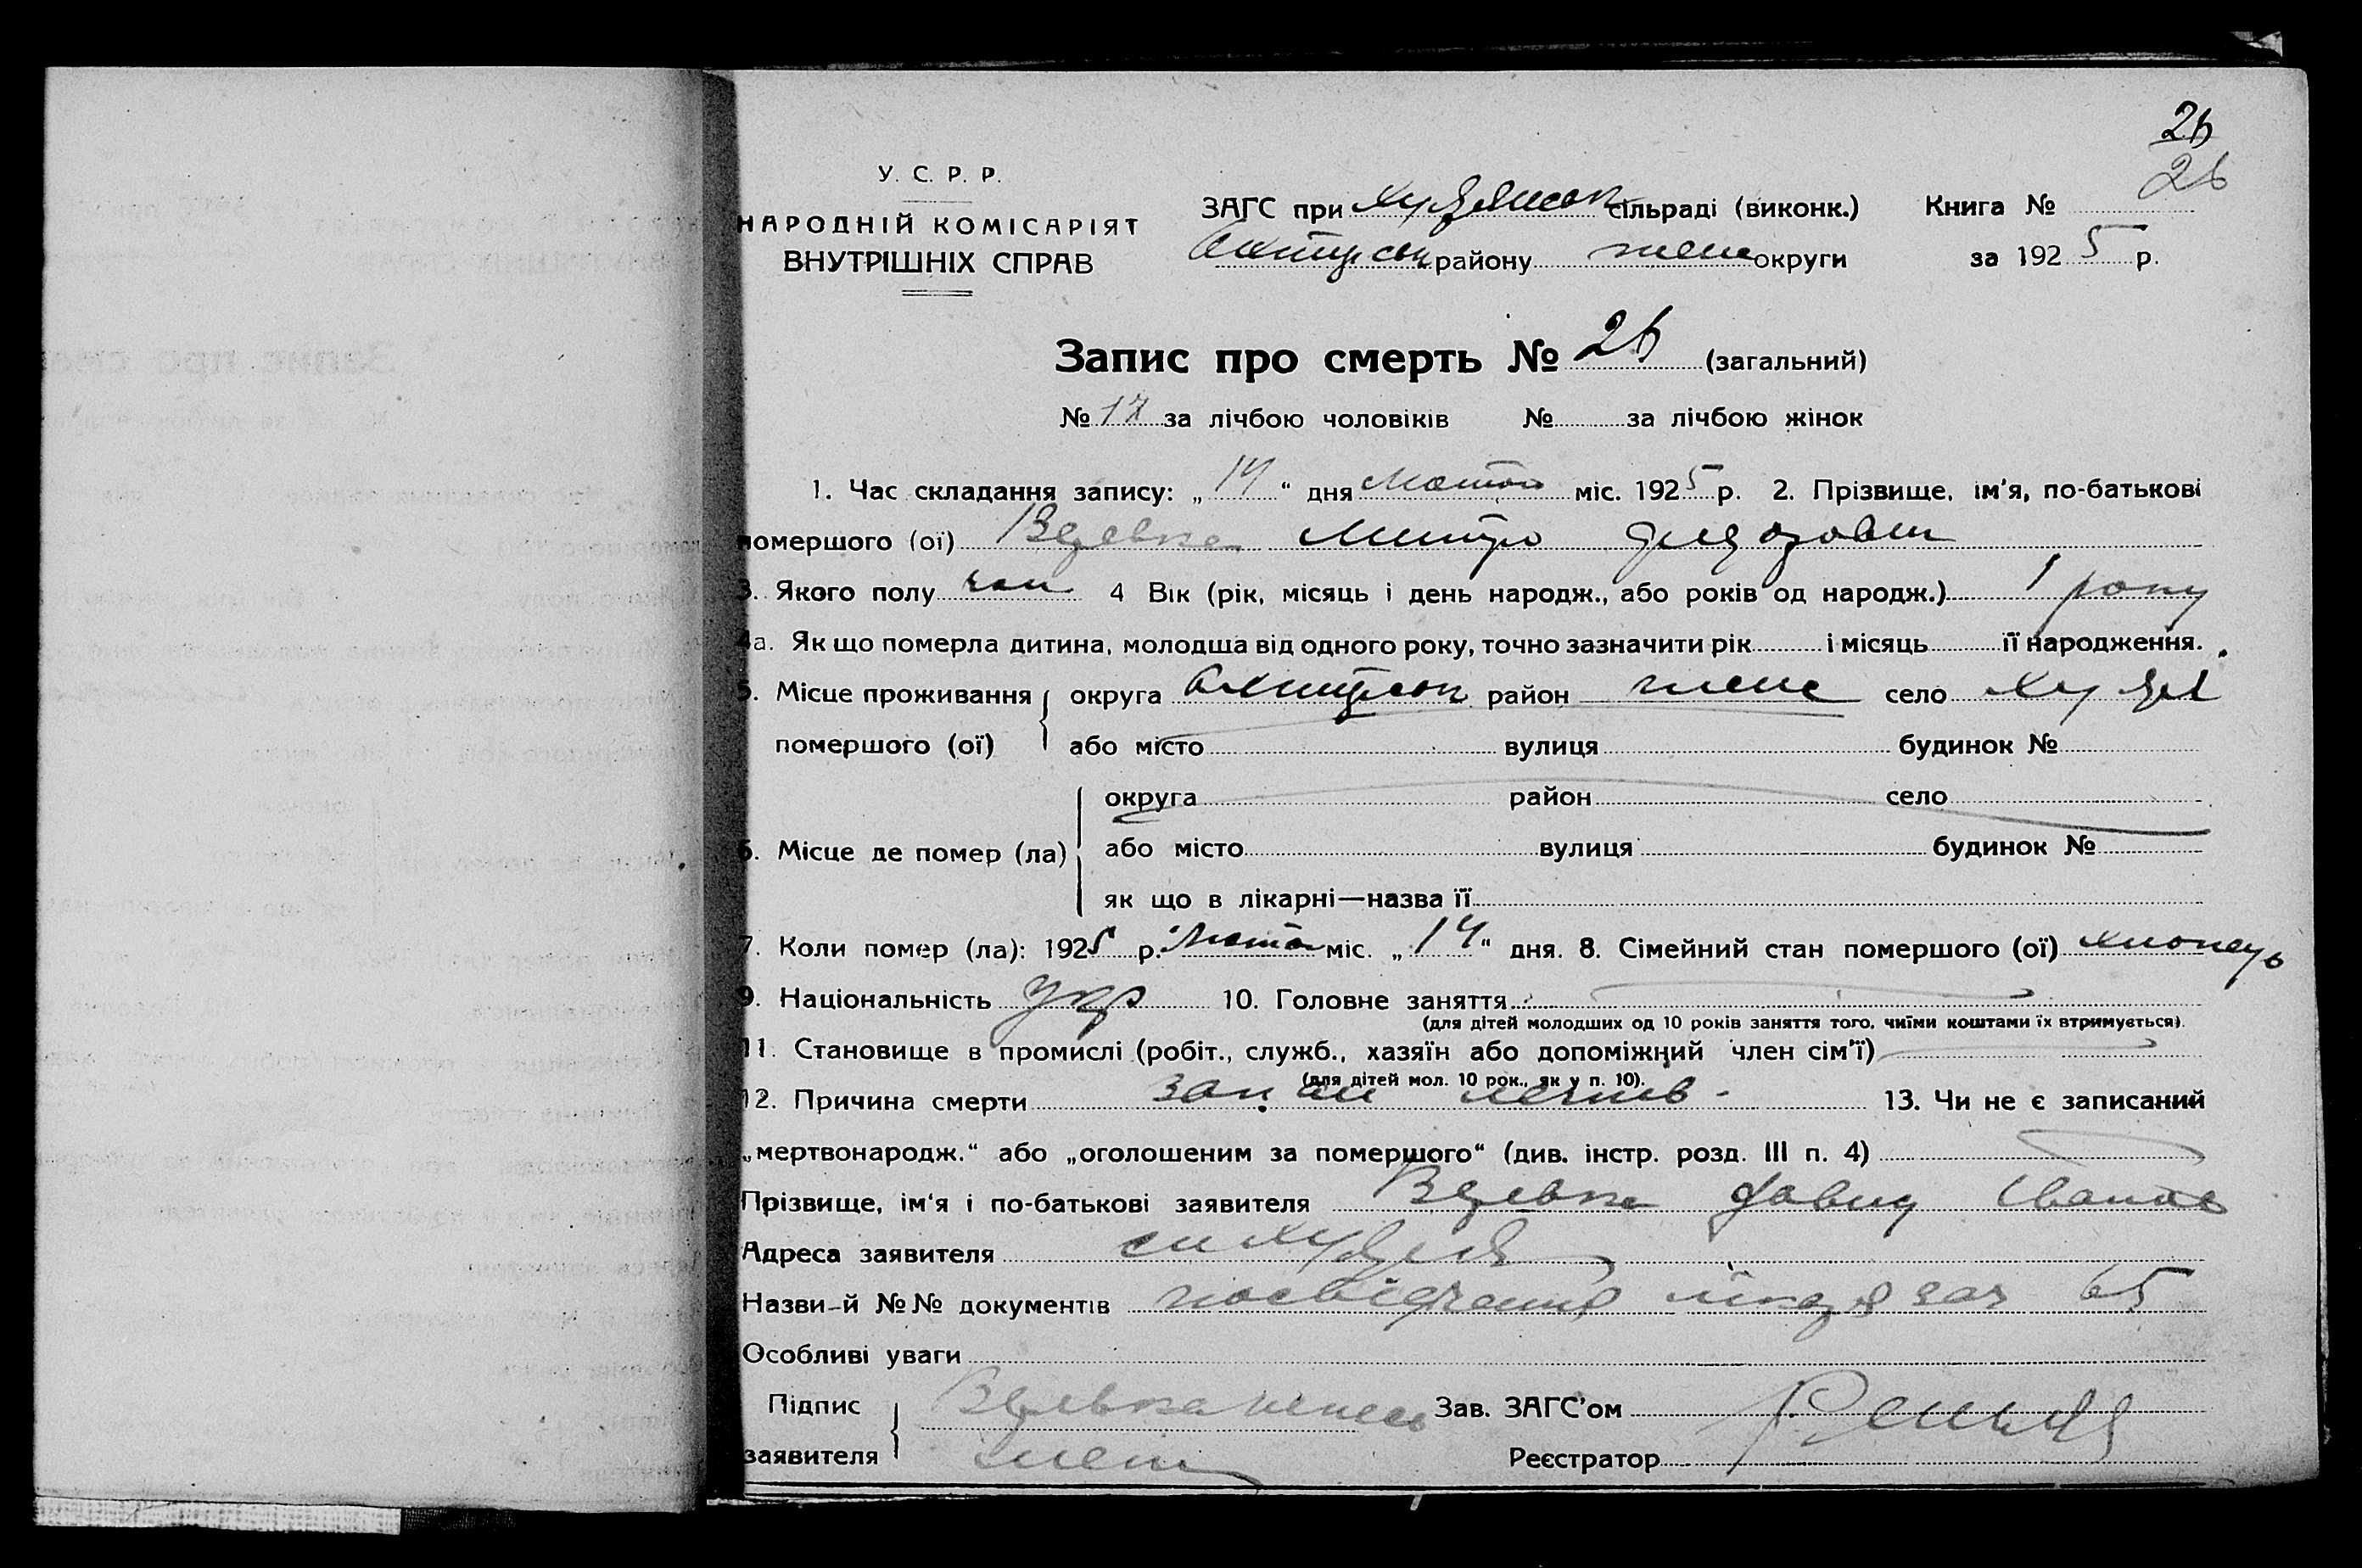 26
26
У. С. Р. Р.
НАРОДНІЙ КОМІСАРІЯТ
ВНУТРІШНІХ СПРАВ
ЗАГС при сільраді (виконк.) Книга №
району округи за 1925 р.
Запис про смерть № 26 (загальний)
№ 17 за лічбою чоловіків № за лічбою жінок
1. Час складання запису: „14“ дня лютого міс. 1925 р. 2. Прізвище, ім'я, по-батькові
помершого (ої) Митро
3. Якого полу чол 4 Вік (рік, місяць і день народж., або років од народж.) 1 року
4а. Як що померла дитина, молодша від одного року, точно зазначити рік і місяць її народження.
5. Місце проживання округа район село
помершого (ої) або місто вулиця будинок №
округа район село
6. Місце де помер (ла) або місто вулиця будинок №
як що в лікарні—назва її
7. Коли помер (ла): 1925 р. лютого міс. „14“ дня. 8. Сімейний стан помершого (ої) хлопець
9. Національність укр 10. Головне заняття
(для дітей молодших од 10 років заняття того, чиїми коштами їх втримується).
11. Становище в промислі (робіт., служб., хазяїн або допоміжний член сім'ї)
(для дітей мол. 10 рок., як у п. 10).
12. Причина смерти легків 13. Чи не є записаний
„мертвонародж.“ або „оголошеним за помершого“ (див. інстр. розд. III п. 4)
Прізвище, ім'я і по-батькові заявителя Давид Іванов
Адреса заявителя
Назви-й №№ документів посвідчення 65
Особливі уваги
Підпис Зав. ЗАГС'ом
заявителя Реєстратор